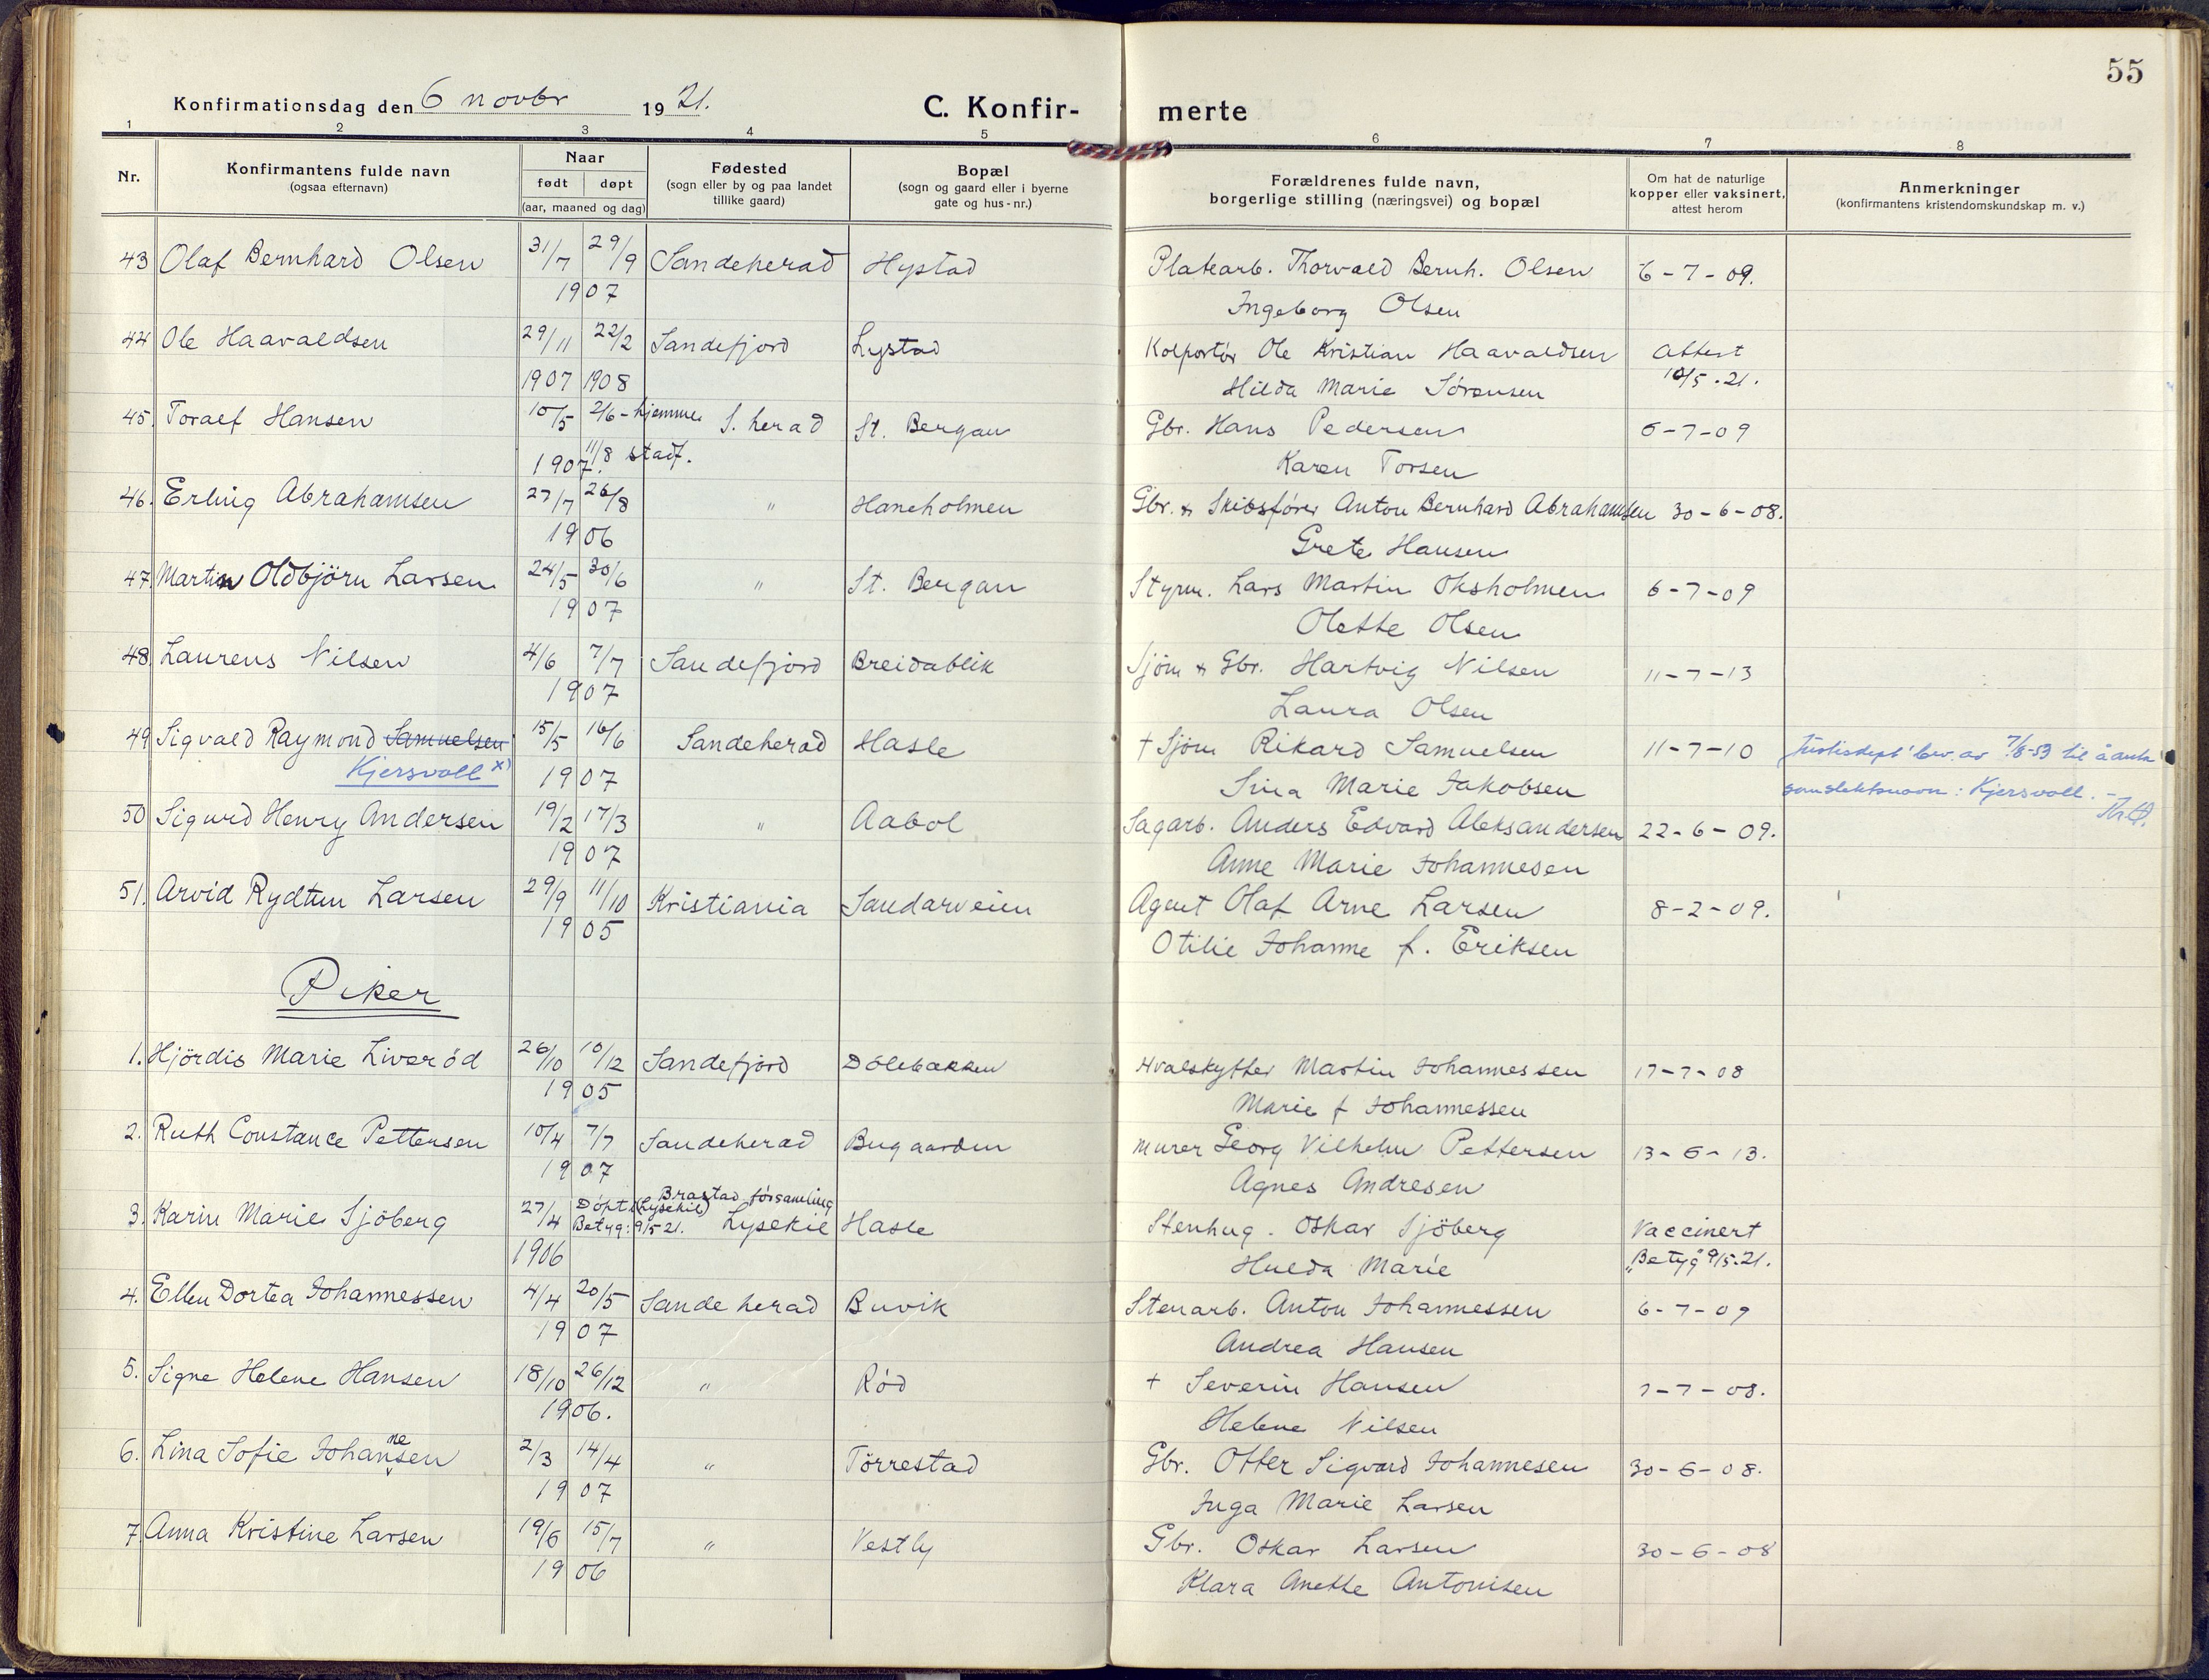 55
Konfirmationsdag den 6 novbr 1921.
C. Konfir- merte
1 2 3 4 5 6 7 8
Nr.
Konfirmantens fulde navn
(ogsaa efternavn)
Naar
født døpt
(aar, maaned og dag)
Fødested
(sogn eller by og paa landet
tillike gaard)
Bopæl
(sogn og gaard eller i byerne
gate og hus-nr.)
Forældrenes fulde navn,
borgerlige stilling (næringsvei) og bopæl
Om hat de naturlige
kopper eller vaksinert,
attest herom
Anmerkninger
(konfirmantens kristendomskundskap m. v.)
43 Olaf Bernhard Olsen 31/7 29/9 Sandeherad Hystad Platearb. Thorvald Bernh. Olsen 6-7-09.
1907 Ingeborg Olsen
44 Ole Haavaldsen 29/11 22/2 Sandefjord Lystad Kolportör Ole Kristian Haavaldsen Attest
1907 1908 Hilda Marie Sörensen 10/5.21.
45. Toralf Hansen 10/5 2/6-hjemme S. herad St. Bergan Gbr. Hans Pedersen 6-7-09
1907. 11/8 stadf. Karen Torsen
46. Erling Abrahamsen 27/7 26/8 " Haneholmen Gbr. & Skibsfører Anton Bernhard Abrahamsen 30-6-08.
1906 Grete Hansen
47. Martin Oldbjörn Larsen 24/5 30/6 " St. Bergan Styrm. Lars Martin Oksholmen 6-7-09
1907 Olette Olsen
48. Laurens Nilsen 4/6 7/7 Sandefjord Breidablik Sjöm & Gbr. Hartvig Nilsen 11-7-13
1907 Laura Olsen
49 Sigvald Raymond Samuelsen 15/5 16/6 Sandeherad Hasle + Sjöm Rikard Samuelsen 11-7-10 Justisdept' bev. av 7/8-53 til å anta
Kjersvoll x) 1907 Sina Marie Jakobsen som slektsnavn: Kjersvoll. -
50 Sigurd Henry Andersen 19/2 17/3 " Aabol Sagarb. Anders Edvard Aleksandersen 22-6-09.
1907 Anne Marie Johannesen
51. Arvid Rydtun Larsen 29/9 11/10 Kristiania Sandarveien Agent Olaf Arne Larsen 8-2-09.
1905 Otilie Johanne f. Eriksen
Piker
1. Hjördis Marie Liveröd 26/10 10/12 Sandefjord Dölebakken Hvalskytter Martin Johannessen 17-7-08
1905 Marie f Johannessen
2. Ruth Constance Pettersen 10/4 7/7 Sandeherad Bugaarden murer Georg Vilhelm Pettersen 13-6-13.
1907 Agnes Andresen
3. Karin Marie Sjöberg 27/4 Döpt i Brastad församling (Lysekil) Betyg: 9/5 21. Lysekil Hasle Stenhug. Oskar Sjöberg Vaccinert
1906 Hulda Marie "Betyg" 9/5-21.
4. Ellen Dortea Johannessen 4/4 20/5 Sandeherad Buvik Stenarb. Anton Johannessen 6-7-09
1907 Andrea Hansen
5. Signe Helene Hansen 18/10 26/12 " Röd + Severin Hansen 7-7-08.
1906. Helene Nilsen
6. Lina Sofie Johannesen 2/3 14/4 " Törrestad Gbr. Otter Sigvard Johannesen 30-6-08.
1907 Inga Marie Larsen
7. Anna Kristine Larsen 19/6 15/7 " Vestby Gbr. Oskar Larsen 30-6-08
1906 Klara Anette Antonisen